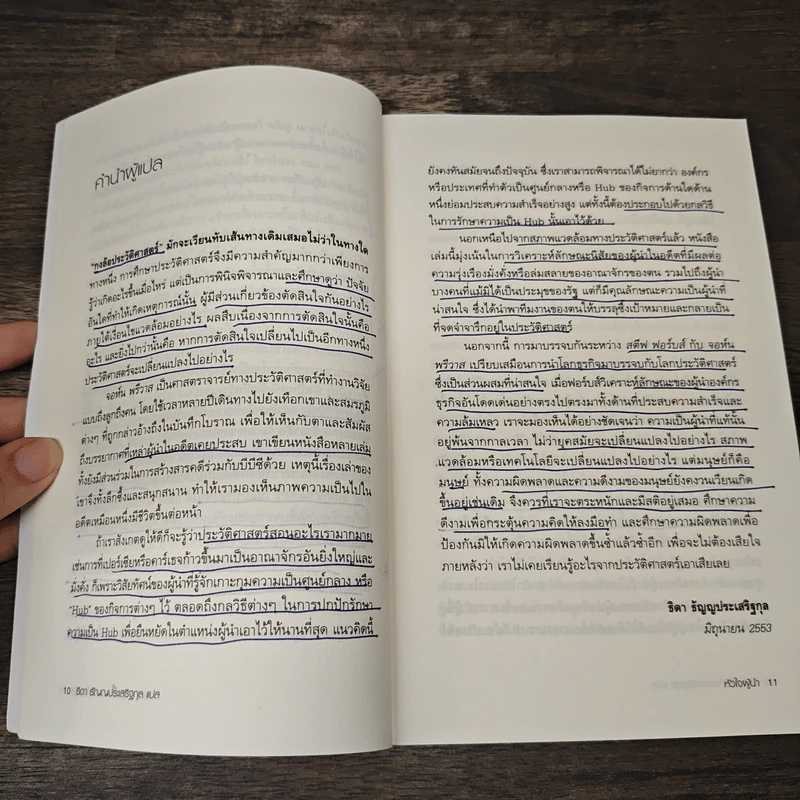 คำนำผู้แปล
"กงล้อประวัติศาสตร์" มักจะเรียนทับเส้นทางเดิมเสมอไม่ว่าในทางใด
ทางหนึ่ง การศึกษาประวัติศาสตร์จึงมีความสำคัญมากกว่าเพียงการ
รู้ว่าเกิดอะไรขึ้นเมื่อไหร่ แต่เป็นการพินิจพิจารณาและศึกษาดูว่า ปัจจัย
อันใดที่ทำให้เกิดเหตุการณ์นั้น ผู้มีส่วนเกี่ยวข้องตัดสินใจกันอย่างไร
ภายใต้เงื่อนไขแวดล้อมอย่างไร ผลสืบเนื่องจากการตัดสินใจนั้นคือ
อะไร และยิ่งไปกว่านั้นคือ หากการตัดสินใจเปลี่ยนไปเป็นอีกทางหนึ่ง
ประวัติศาสตร์จะเปลี่ยนแปลงไปอย่างไร
จอห์น พรีวาส เป็นศาสตราจารย์ทางประวัติศาสตร์ที่ทำงานวิจัย
แบบถึงลูกถึงคน โดยใช้เวลาหลายปีเดินทางไปยังเทือกเขาและสมรภูมิ
ต่างๆ ที่ถูกกล่าวอ้างถึงในบันทึกโบราณ เพื่อให้เห็นกับตาและสัมผัส
ถึงบรรยากาศที่เหล่าผู้นำในอดีตเคยประสบ เขาเขียนหนังสือหลายเล่ม
ทั้งยังมีส่วนร่วมในการสร้างสารคดีร่วมกับบีบีซีด้วย เหตุนี้เรื่องเล่าของ
เขาจึงทั้งลึกซึ้งและสนุกสนาน ทำให้เรามองเห็นภาพความเป็นไปใน
อดีตเหมือนหนึ่งมีชีวิตขึ้นต่อหน้า
ถ้าเราสังเกตดูให้ดีก็จะรู้ว่าประวัติศาสตร์สอนอะไรเรามากมาย
เช่นการที่เปอร์เซียหรือคาร์เธจก้าวขึ้นมาเป็นอาณาจักรอันยิ่งใหญ่และ
มั่งคั่ง ก็เพราะวิสัยทัศน์ของผู้นำที่รู้จักเกาะกุมความเป็นศูนย์กลาง หรือ
"Hub" ของกิจการต่างๆ ไว้ ตลอดถึงกลวิธีต่างๆ ในการปกปักรักษา
ความเป็น Hub เพื่อยืนหยัดในตำแหน่งผู้นำเอาไว้ให้นานที่สุด แนวคิดนี้
10 ธิดา ธัญญประเสริฐกุล แปล
ยังคงทันสมัยจนถึงปัจจุบัน ซึ่งเราสามารถพิจารณาได้ไม่ยากว่า องค์กร
หรือประเทศที่ทำตัวเป็นศูนย์กลางหรือ Hub ของกิจการด้านใดด้าน
หนึ่งย่อมประสบความสำเร็จอย่างสูง แต่ทั้งนี้ต้องประกอบไปด้วยกลวิธี
ในการรักษาความเป็น Hub นั้นเอาไว้ด้วย
นอกเหนือไปจากสภาพแวดล้อมทางประวัติศาสตร์แล้ว หนังสือ
เล่มนี้มุ่งเน้นในการวิเคราะห์ลักษณะนิสัยของผู้นำในอดีตที่มีผลต่อ
ความรุ่งเรืองมั่งคั่งหรือล่มสลายของอาณาจักรของตน รวมไปถึงผู้นำ
บางคนที่แม้มิได้เป็นประมุขของรัฐ แต่ก็มีคุณลักษณะความเป็นผู้นำที่
น่าสนใจ ซึ่งได้นำพาทีมงานของตนให้บรรลุซึ่งเป้าหมายและกลายเป็น
ที่จดจำจารึกอยู่ในประวัติศาสตร์
นอกจากนี้ การมาบรรจบกันระหว่าง สตีฟ ฟอร์บส์ กับ จอห์น
พรีวาส เปรียบเสมือนการนำโลกธุรกิจมาบรรจบกับโลกประวัติศาสตร์
ซึ่งเป็นส่วนผสมที่น่าสนใจ เมื่อฟอร์บส์วิเคราะห์ลักษณะของผู้นำองค์กร
ธุรกิจอันโดดเด่นอย่างตรงไปตรงมาทั้งด้านที่ประสบความสำเร็จและ
ความล้มเหลว เราจะมองเห็นได้อย่างชัดเจนว่า ความเป็นผู้นำที่แท้นั้น
อยู่พ้นจากกาลเวลา ไม่ว่ายุคสมัยจะเปลี่ยนแปลงไปอย่างไร สภาพ
แวดล้อมหรือเทคโนโลยีจะเปลี่ยนแปลงไปอย่างไร แต่มนุษย์ก็คือ
มนุษย์ ทั้งความผิดพลาดและความดีงามของมนุษย์ยังคงวนเวียนเกิด
ขึ้นอยู่เช่นเดิม จึงควรที่เราจะตระหนักและมีสติอยู่เสมอ ศึกษาความ
ดีงามเพื่อกระตุ้นความคิดให้ลงมือทำ และศึกษาความผิดพลาดเพื่อ
ป้องกันมิให้เกิดความผิดพลาดขึ้นซ้ำแล้วซ้ำอีก เพื่อจะไม่ต้องเสียใจ
ภายหลังว่า เราไม่เคยเรียนรู้อะไรจากประวัติศาสตร์เอาเสียเลย
ธิดา ธัญญประเสริฐกุล
มิถุนายน 2553
หัวใจผู้นำ 11